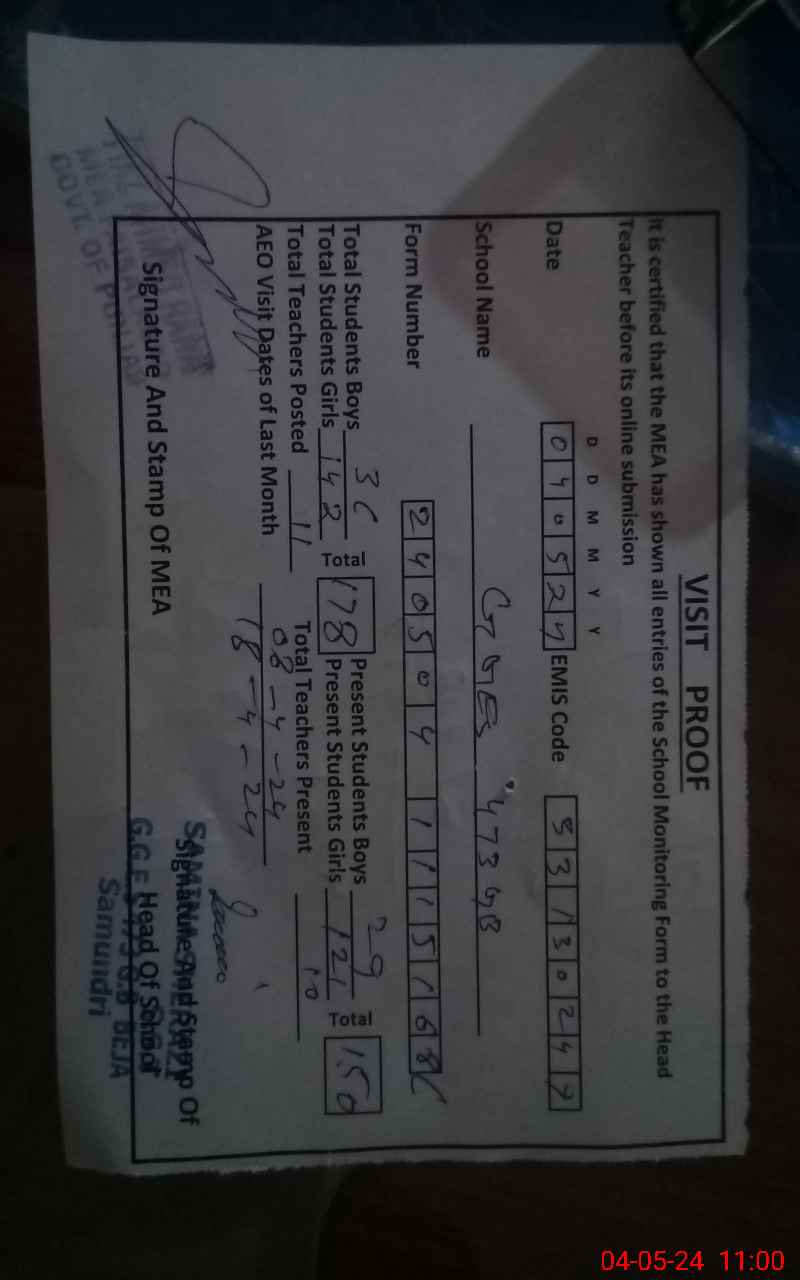 VISIT PROOF
It is certified that the MEA has shown all entries of the School Monitoring Form to the Head
Teacher before its online submission
D D M M Y Y
Date 040524 EMIS Code 53130247
School Name GGES 473 GB
Form Number 240504 1115168
Total Students Boys 36 Total 178 Present Students Boys 29 Total 150
Total Students Girls 142 Present Students Girls 121
Total Teachers Posted 11 Total Teachers Present 10
AEO Visit Dates of Last Month 08-4-24
18-4-24
Signature And Stamp Of MEA
Signature And Stamp Of
Head Of School
GOVT. OF PUNJAB
SAMINA
G.G.E.S 473 G.B BEJA
Samundri
04-05-24 11:00